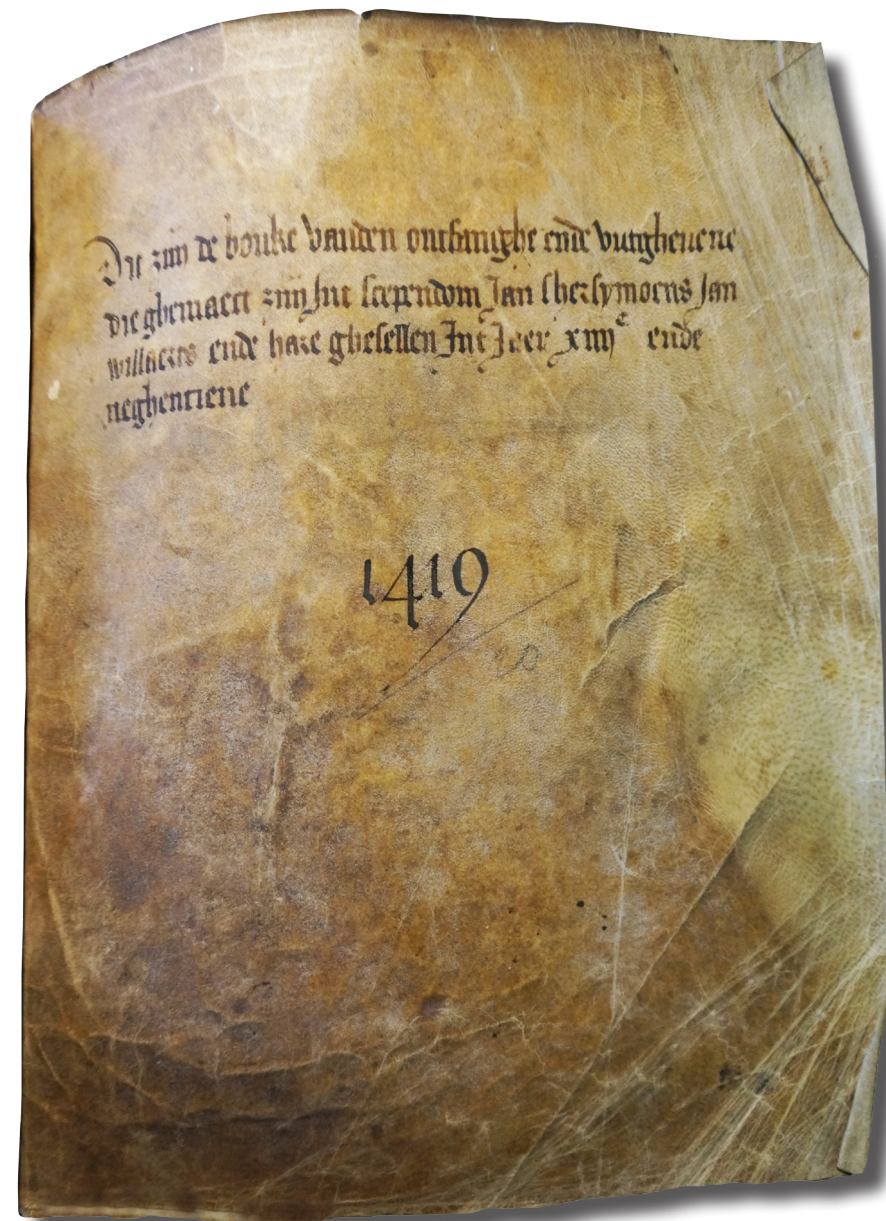 Dit zijn de bouke vanden ontfanghe ende vutgheuene
die ghemaect zijn Int scependom Jan Sherlymoens Jan
willaerts ende hare ghesellen Int Jaer xiiijc ende
neghentiene
1419
20